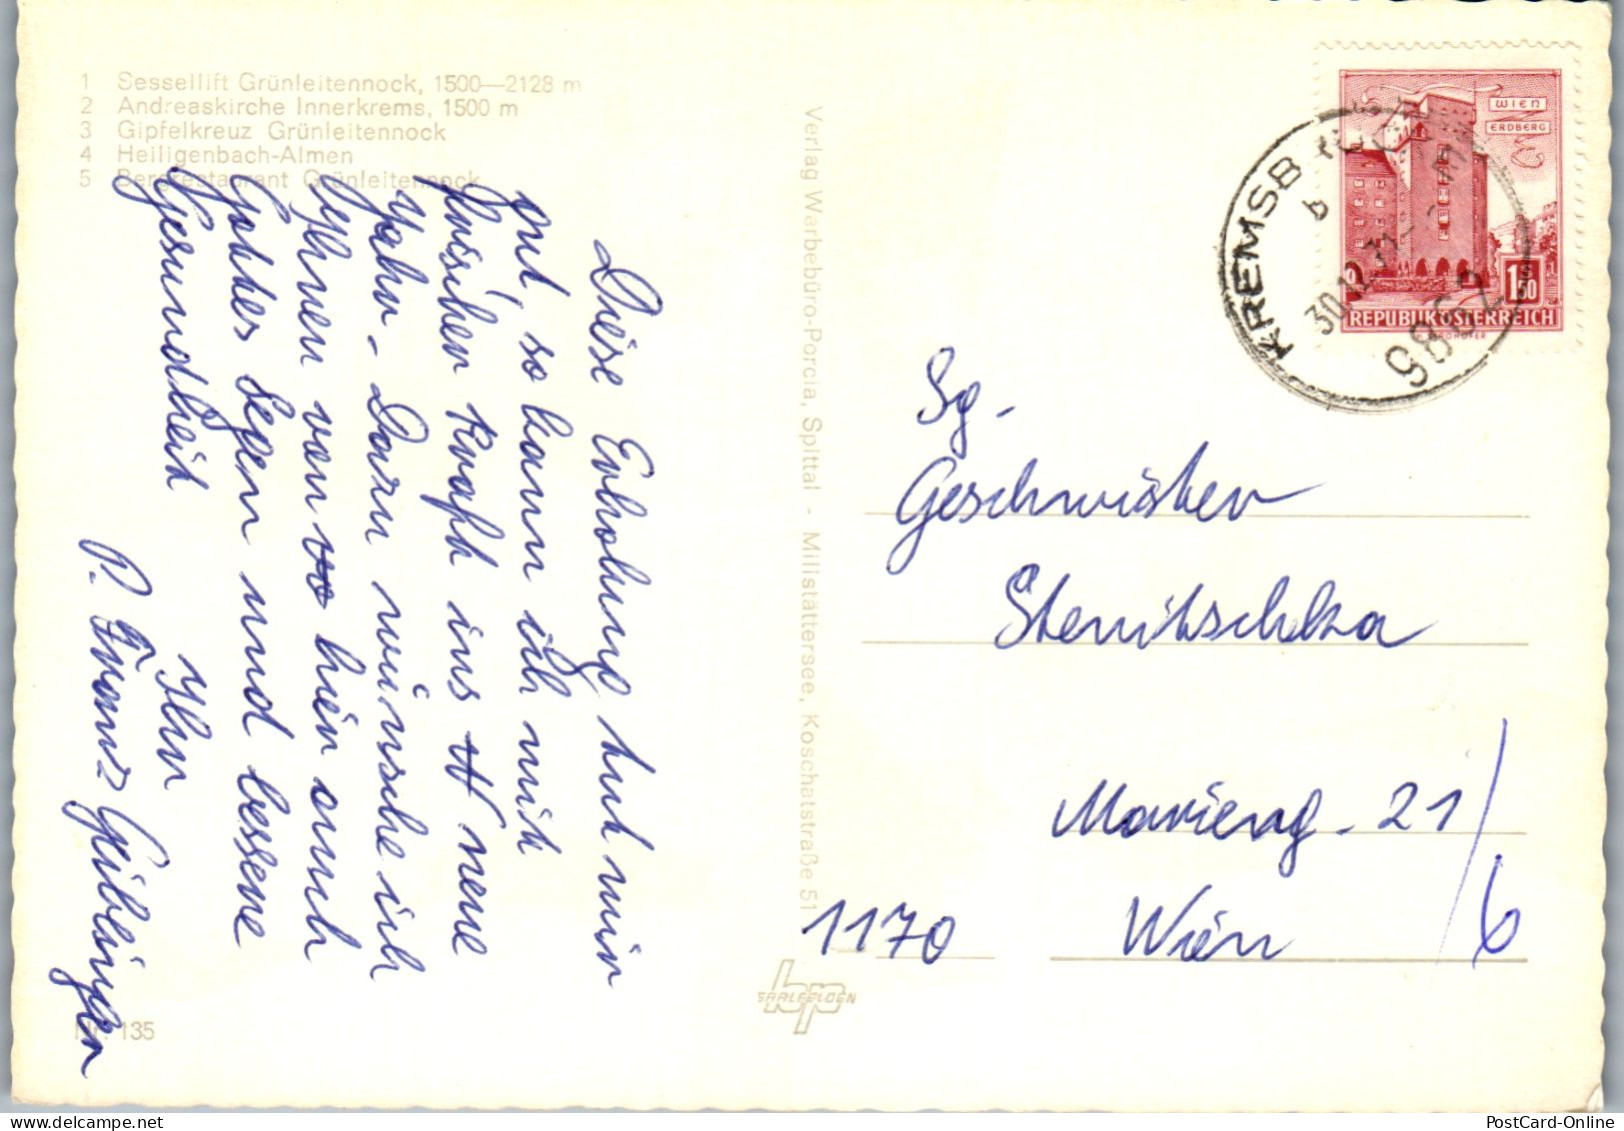 1 Sessellift Grünleitennock, 1500—2128 m
2 Andreaskirche Innerkrems, 1500 m
3 Gipfelkreuz Grünleitennock
4 Heiligenbach-Almen
5 Bergrestaurant Grünleitennock
Diese Erholung tut mir
gut, so kann ich mit
frischer Kraft ins neue
Jahr. Dazu wünsche ich
Ihnen von hier auch
Gottes Segen und bessere
Gesundheit
Ihr
P. Franz
Nr. 135
Verlag Werbebüro-Porcia, Spittal - Millstättersee, Koschatstraße 51
SAALFELDEN
WIEN
ERDBERG
1.50
REPUBLIK ÖSTERREICH
KREMSBRÜCKE
9862
Sg.
Geschwister
Stenitschka
Marieng. 21/6
1170 Wien
PostCard-Online